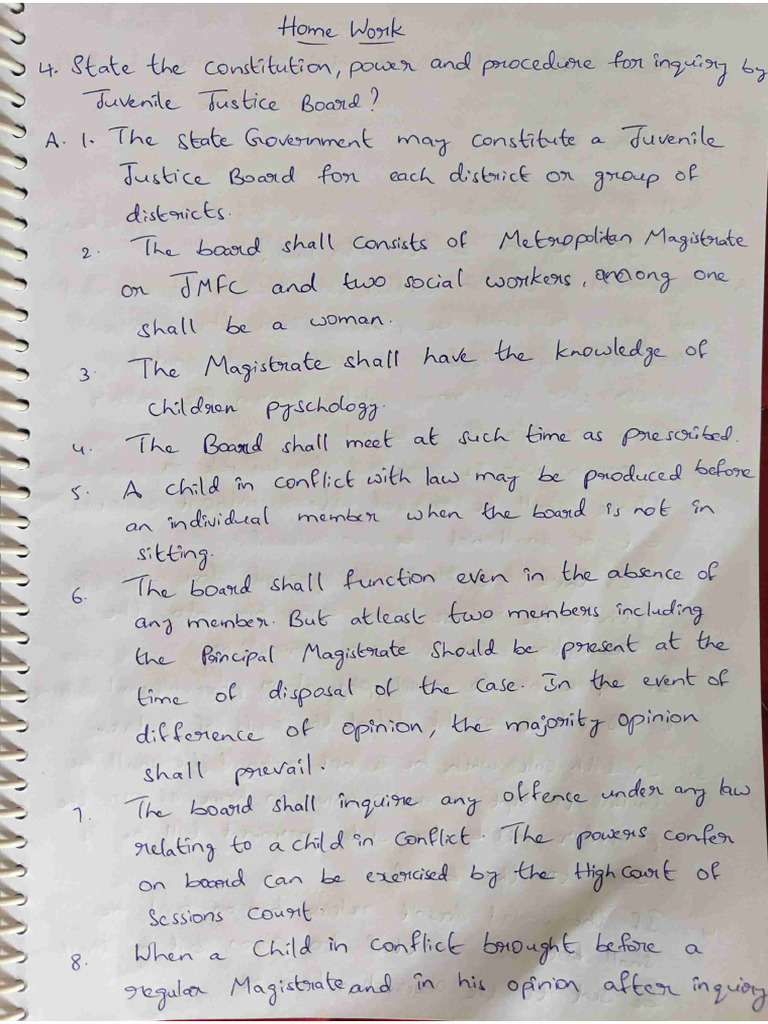 Home Work
4. State the constitution, power and procedure for inquiry by
Juvenile Justice Board?
A. 1. The State Government may constitute a Juvenile
Justice Board for each district or group of
districts.
2. The board shall consists of Metropolitan Magistrate
or JMFC and two social workers, among one
shall be a woman.
3. The Magistrate shall have the knowledge of
children pyschology.
4. The Board shall meet at such time as prescribed.
5. A child in conflict with law may be produced before
an individual member when the board is not in
sitting.
6. The board shall function even in the absence of
any member. But atleast two members including
the Principal Magistrate should be present at the
time of disposal of the case. In the event of
difference of opinion, the majority opinion
shall prevail.
7. The board shall inquire any offence under any law
relating to a child in conflict. The powers confer
on board can be exercised by the High Court of
Sessions Court.
8. When a Child in conflict brought before a
regular Magistrate and in his opinion after inquiry